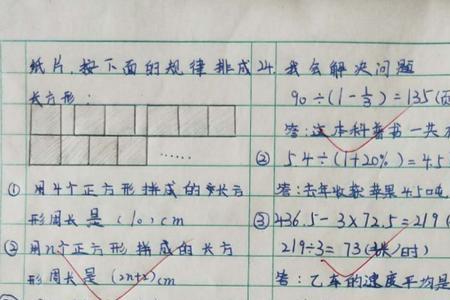 纸片,按下面的规律排成
长方形:
……
① 用4个正方形拼成的长方
形周长是(10)cm
② 用n个正方形拼成的长方
形周长是(2n+2)cm
24. 我会解决问题
90÷(1-1/3)=135(页
答:这本科普书一共
② 5.4÷(1+20%)=4.5
答:去年收获苹果4.5吨
③ 436.5-3×72.5=219(
219÷3=73(千米/时)
答:乙车的速度平均是